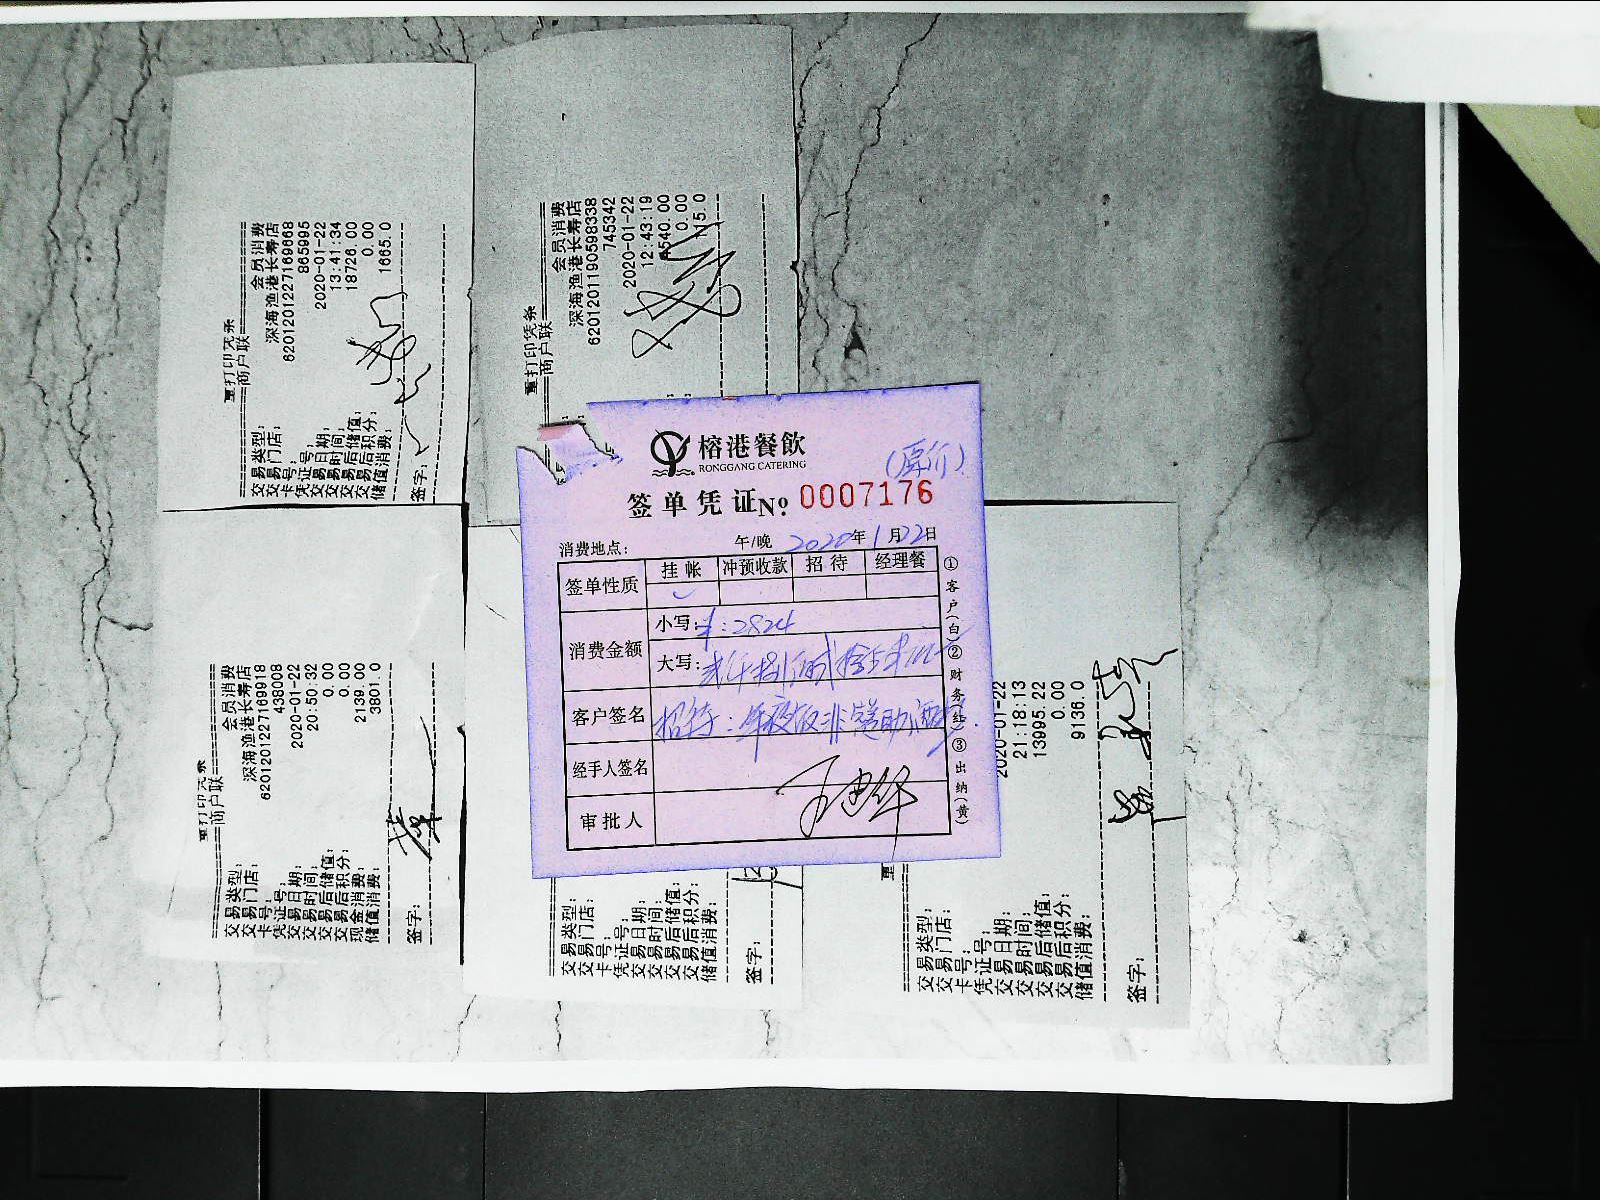 重打印凭条
商户联
交易类型: 会员消费
交易门店: 深海渔港长寿店
卡号: 6201201227169668
凭证号: 865995
交易日期: 2020-01-22
交易时间: 13:41:34
交易后储值: 18726.00
交易后积分: 0.00
储值消费: 1665.0
签字:
重打印凭条
商户联
会员消费
深海渔港长寿店
6201201190598338
745342
2020-01-22
12:43:19
540.00
0.00
15.0
重打印凭条
商户联
交易类型: 会员消费
交易门店: 深海渔港长寿店
卡号: 6201201227169918
凭证号: 438008
交易日期: 2020-01-22
交易时间: 20:50:32
交易后储值: 0.00
交易后积分: 0.00
现金消费: 2139.00
储值消费: 3801.0
签字:
榕港餐飲
RONGGANG CATERING
(原价)
签单凭证 No. 0007176
消费地点: 午/晚 2020年1月22日
签单性质 挂帐 冲预收款 招待 经理餐
消费金额
小写: ¥:2824
大写: 贰仟捌佰贰拾
客户签名 招待:年夜饭非赞助酒
经手人签名
审批人
①客户(白)②财务(红)③出纳(黄)
交易类型:
交易门店:
卡号:
凭证号:
交易日期:
交易时间:
交易后储值:
交易后积分:
储值消费:
签字:
重
交易类型:
交易门店:
卡号:
凭证号:
交易日期: 2020-01-22
交易时间: 21:18:13
交易后储值: 13995.22
交易后积分: 0.00
储值消费: 9136.0
签字: